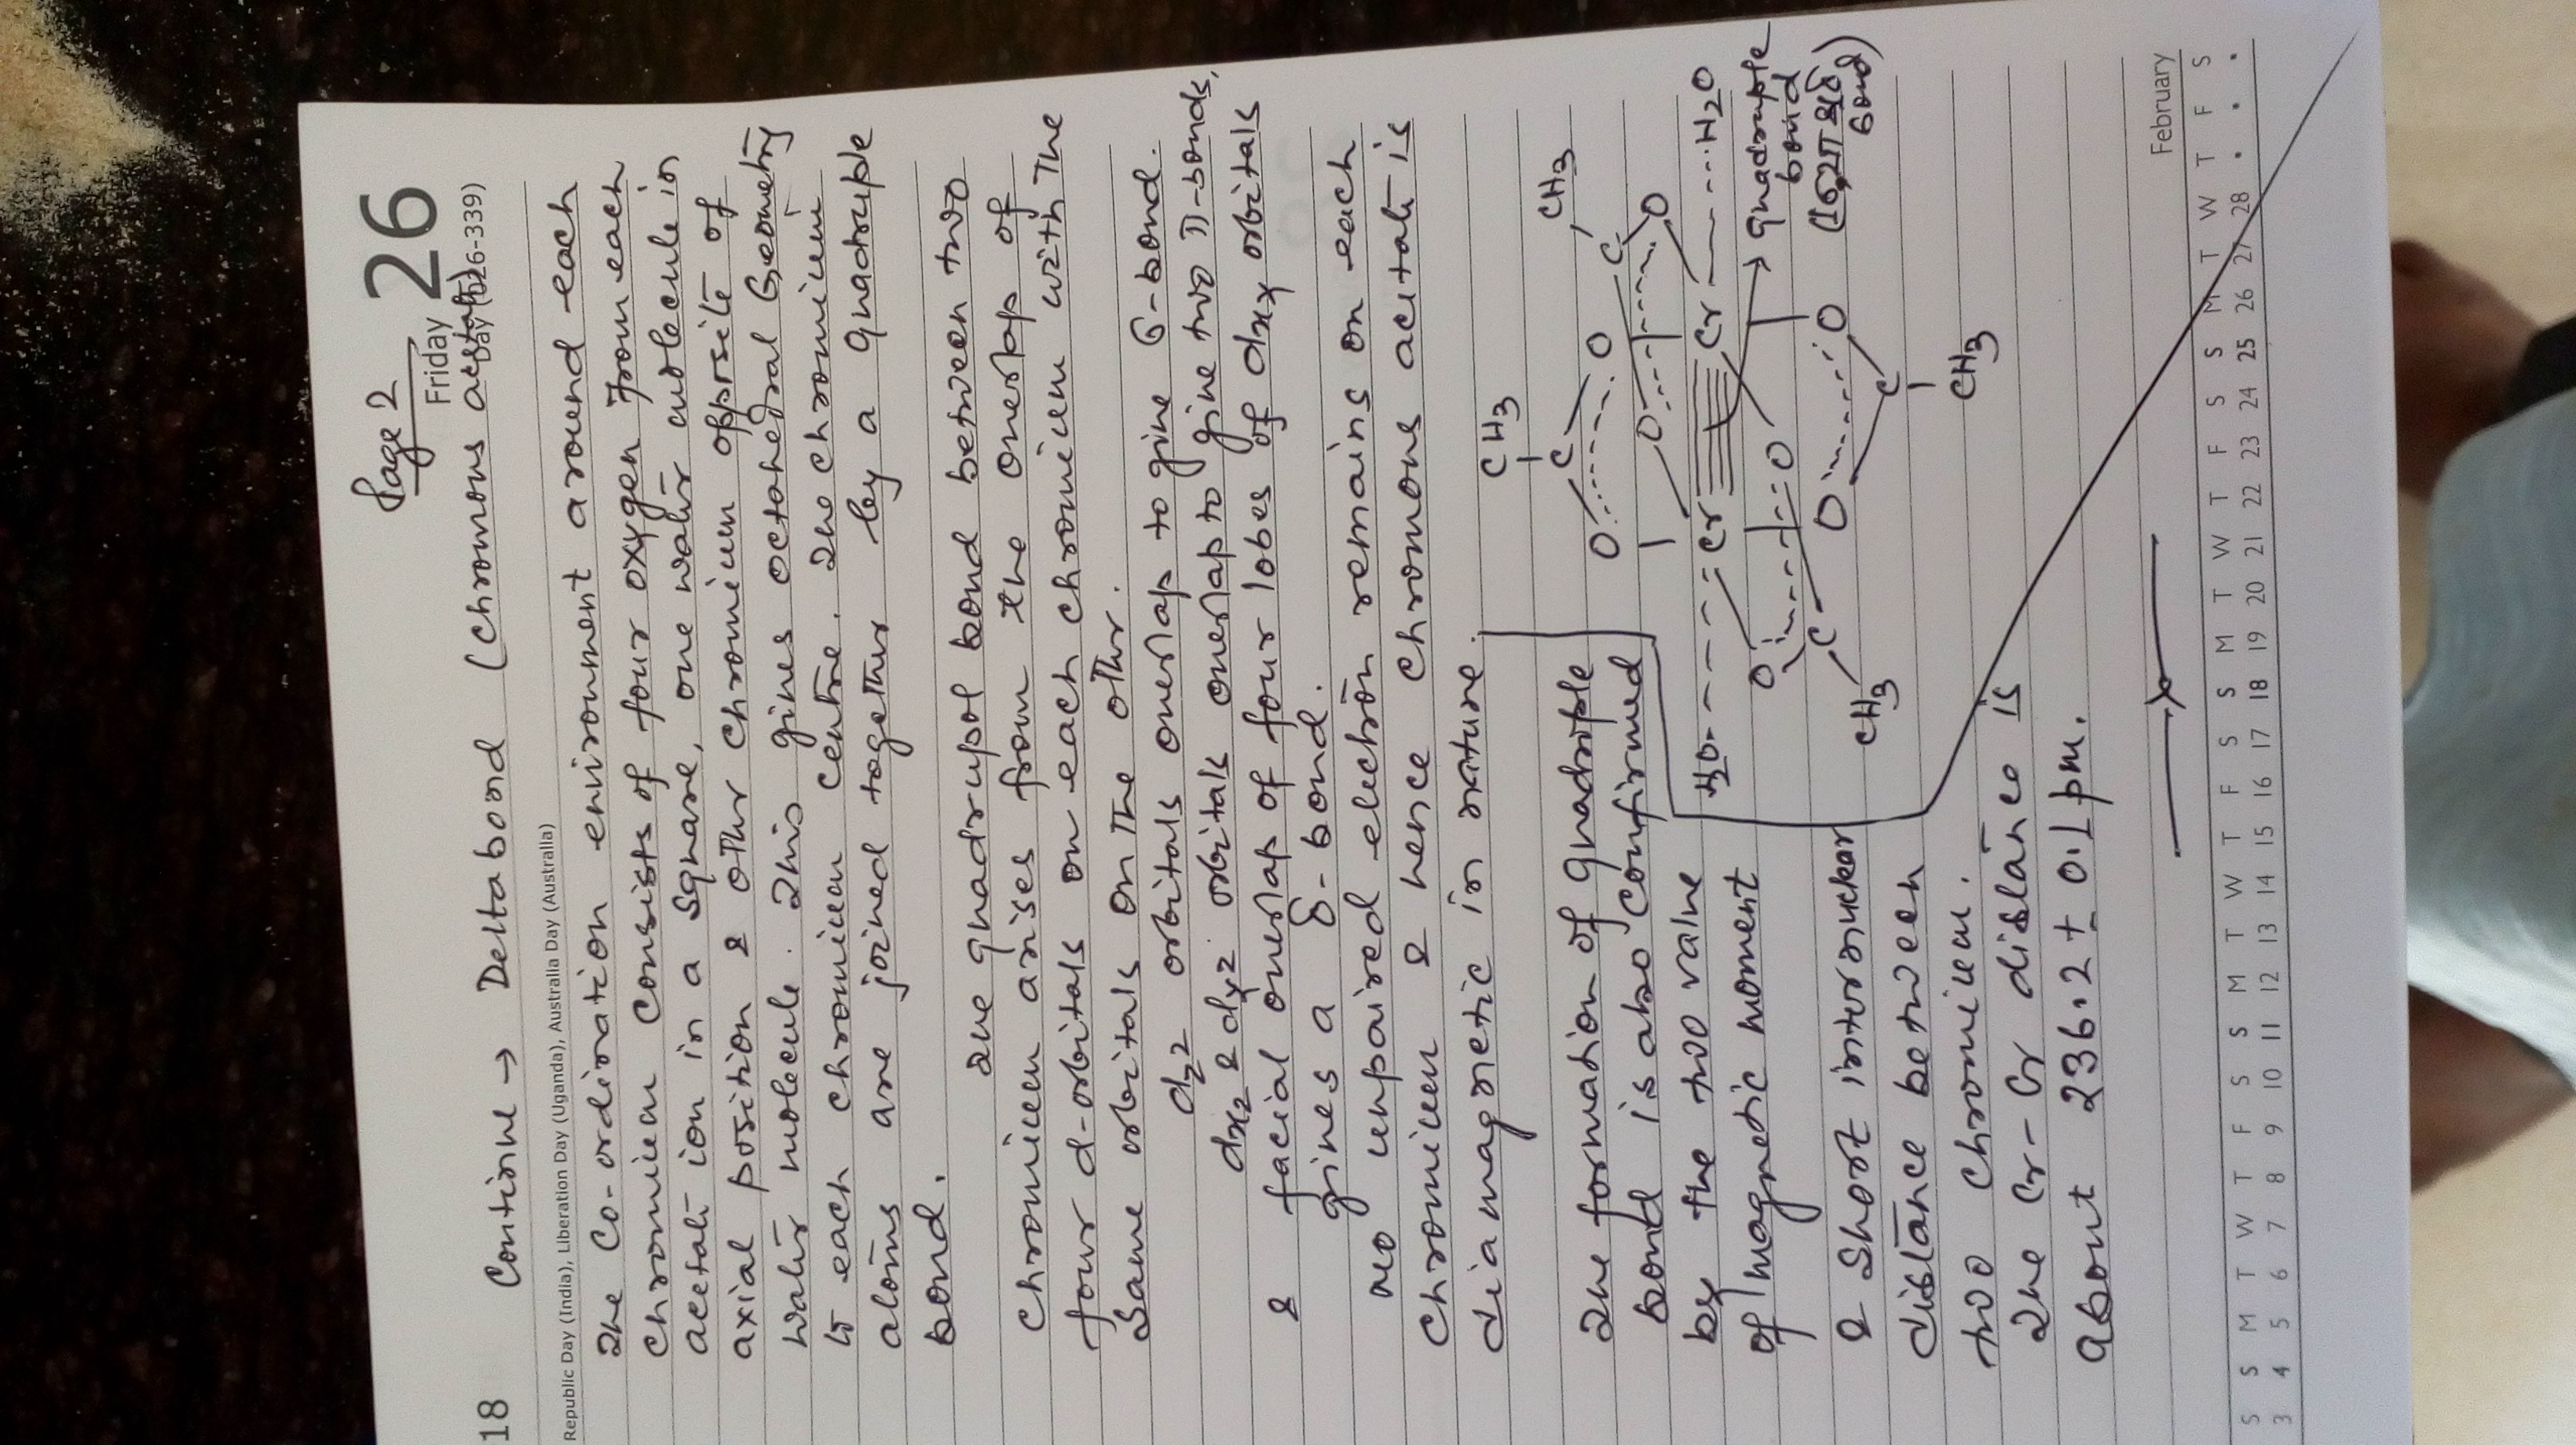 Page 2
18
Friday 26
Continue → Delta bond (Chromous acetate)
Day (026-339)
Republic Day (India), Liberation Day (Uganda), Australia Day (Australia)
The Co-ordination environment around each
chromium consists of four oxygen from each
acetate ion in a square, one water molecule in
axial position & other chromium opposite of
water molecule. This gives octahedral Geometry
to each chromium centre. The chromium
atoms are joined together by a quadruple
bond.
The quadrupol bond between two
chromium arises from the overlap of
four d-orbitals on each chromium with the
same orbitals on the other.
dz2 orbitals overlap to give σ-bond.
dxz & dyz orbitals overlap to give two π-bonds,
& facial overlap of four lobes of dxy orbitals
gives a δ-bond.
no unpaired electron remains on each
chromium & hence chromous acetate is
diamagnetic in nature.
The formation of quadruple
bond is also confirmed
by the two value
of magnetic moment
& short internuclear
distance between
two chromium.
The Cr-Cr distance is
about 236.2 ± 0.1 pm.
CH3
CH3
C
C
O O
O O
H2O Cr Cr H2O
→ quadruple
bond
bond)
O O
O O
C
C
CH3
CH3
February
S S M T W T F S S M T W T F S S M T W T F S S M T W T F S
3 4 5 6 7 8 9 10 11 12 13 14 15 16 17 18 19 20 21 22 23 24 25 26 27 28 . . .